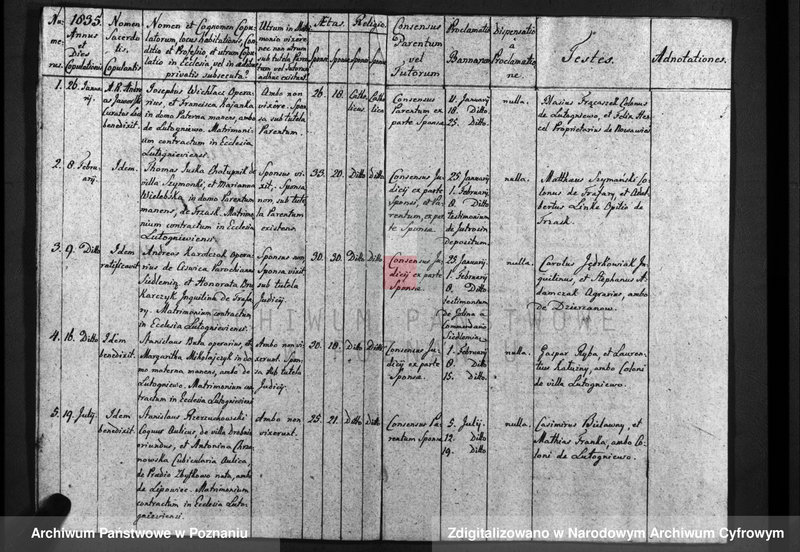 Nu-
me-
rus.
1835.
Annus
et
Dies
Copulationis
Nomen
Sacerdo-
tis,
Copulantis.
Nomen et Cognomen Copu-
latorum, locus habitationis, Con-
ditio et Professio, et utrum Copu-
latio in Ecclesia vel in aedibus
privatis subsecuta?
Utrum in Matri-
monio vixere
nec non utrum
sub tutela Paren-
tum vel Tutorum
adhuc existant.
Ætas.
Religio.
Consensus
Parentum
vel
Tutorum
Proclamatio
Bannorum
Dispensatio
a
Proclamatio-
ne.
Testes.
Adnotationes.
1.
26. Janua-
rij.
benedixit.
Josephus
Opera-
rius, et Francisca Kajanka
in domo Paterna manens, ambo
de Lutogniewo. Matrimoni-
um contractum in Ecclesia
Lutogniewiensi.
Ambo non
vixere. Spon-
sa sub tutela
Parentum.
26.
18.
Catho-
lica
Catho-
lica
Consensus
Parentum ex
parte Sponsa.
11. Januarij
18. Ditto
25. Ditto.
nulla.
Blasius Frączszek Colonus
de Lutogniewo, et Felix
Proprietarius de
2.
8. Febru-
arij.
Idem.
Thomas Juska Chałupnik de
villa Szymonki, et Marianna
Wielebska, in domo Parentum
manens, de Trzask. Matrimo-
nium contractum in Ecclesia
Lutogniewiensi.
Sponsus vi-
xit; Sponsa
non, sub tute-
la Parentum
existens.
33.
20.
Ditto
ditto
Consensus Ju-
dicij ex parte
Sponsi, et Pa-
rentum, ex par-
te Sponsa.
25. Januarij
1. Februarij
8. Ditto
testimonium
de Jutrosin
depositum.
nulla.
Matthaeus Szymański Co-
lonus de Trafary, et Adal-
bertus Linke Opilio de
Trzask.
3.
9. Ditto
Idem
ratificavit
Andreas Kardczak Opera-
rius de
Parochiae
Siedlemin, et Honorata Du-
karczyk Inquilina de Trafa-
ry. Matrimonium contractum
in Ecclesia Lutogniewiensi.
Sponsus non,
Sponsa vixit
sub tutela
Judicij.
30.
30.
Ditto
Ditto
Consensus Ju-
dicij ex parte
Sponsa.
25. Januarij.
1. Februarij
8. Ditto
testimonium
de Golina a
Commendario
Siedlemin.
nulla.
Carolus Jędrkowiak In-
quilinus, et Stephanus A-
damczak Agrarius, ambo
de Dzierzanow.
4.
16. Ditto
Idem
benedixit.
Stanislaus Buta operarius, et
Margaritha Mikołajczyk in do-
mo materna manens, ambo de
Lutogniewo. Matrimonium con-
tractum in Ecclesia Lutogniewiensi
Ambo non vi-
xerunt. Spon-
sa sub tutela
Judicij.
30.
18.
Ditto
Ditto
Consensus Ju-
dicij ex parte
Sponsa.
1. Februarij
8. Ditto
15. Ditto.
nulla.
Gaspar Ryba, et Lauren-
tius Kałużny, ambo Coloni
de villa Lutogniewo.
5.
19. Julij
Idem
benedixit.
Stanislaus
Coquus Aulicus, de villa
oriundus, et Antonina Chrza-
nowska Cubicularia Aulica,
de Pradio Zbytkowo nata, ambo
de Lipowiec. Matrimonium
contractum in Ecclesia Luto-
gniewiensi.
Ambo non
vixerunt.
25.
21.
Ditto
Ditto
Consensus Pa-
rentum Sponsa
5. Julij.
12. Ditto
19. Ditto
nulla.
Casimirus Bielawny, et
Mathias Franka, ambo Co-
loni de Lutogniewo.
Archiwum Państwowe w Poznaniu
Zdigitalizowano w Narodowym Archiwum Cyfrowym.